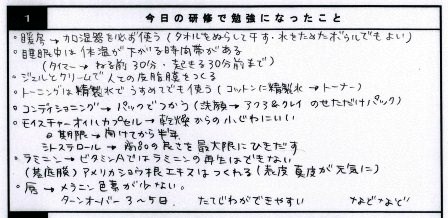 1 今日の研修で勉強になったこと
○暖房→加湿器を必ず使う(タオルをぬらして干す・水をためたボウルでもよい)
○睡眠中は体温が下がる時間帯がある
(タイマー→ねる前30分・起きる30分前まで)
○ジェルとクリームで人工の皮脂膜をつくる
○トーニングは精製水でうすめてでも使う(コットンに精製水→トーナー)
○コンディショニング→パックでつかう(洗顔→アクア&クレイ のせただけパック)
○モイスチャーオイルカプセル→乾燥からの小じわにいい
◎期限→向けてから半年
シトステロール→商品の良さを最大限にひきだす
○ラミニン→ビタミンAではラミニンの再生はできない
(基底膜)アメリカショウマ根エキスはつくれる(表皮真皮が元気に)
○唇→メラニン色素が少ない。
ターンオーバー3〜5日 たてじわができやすい などなど